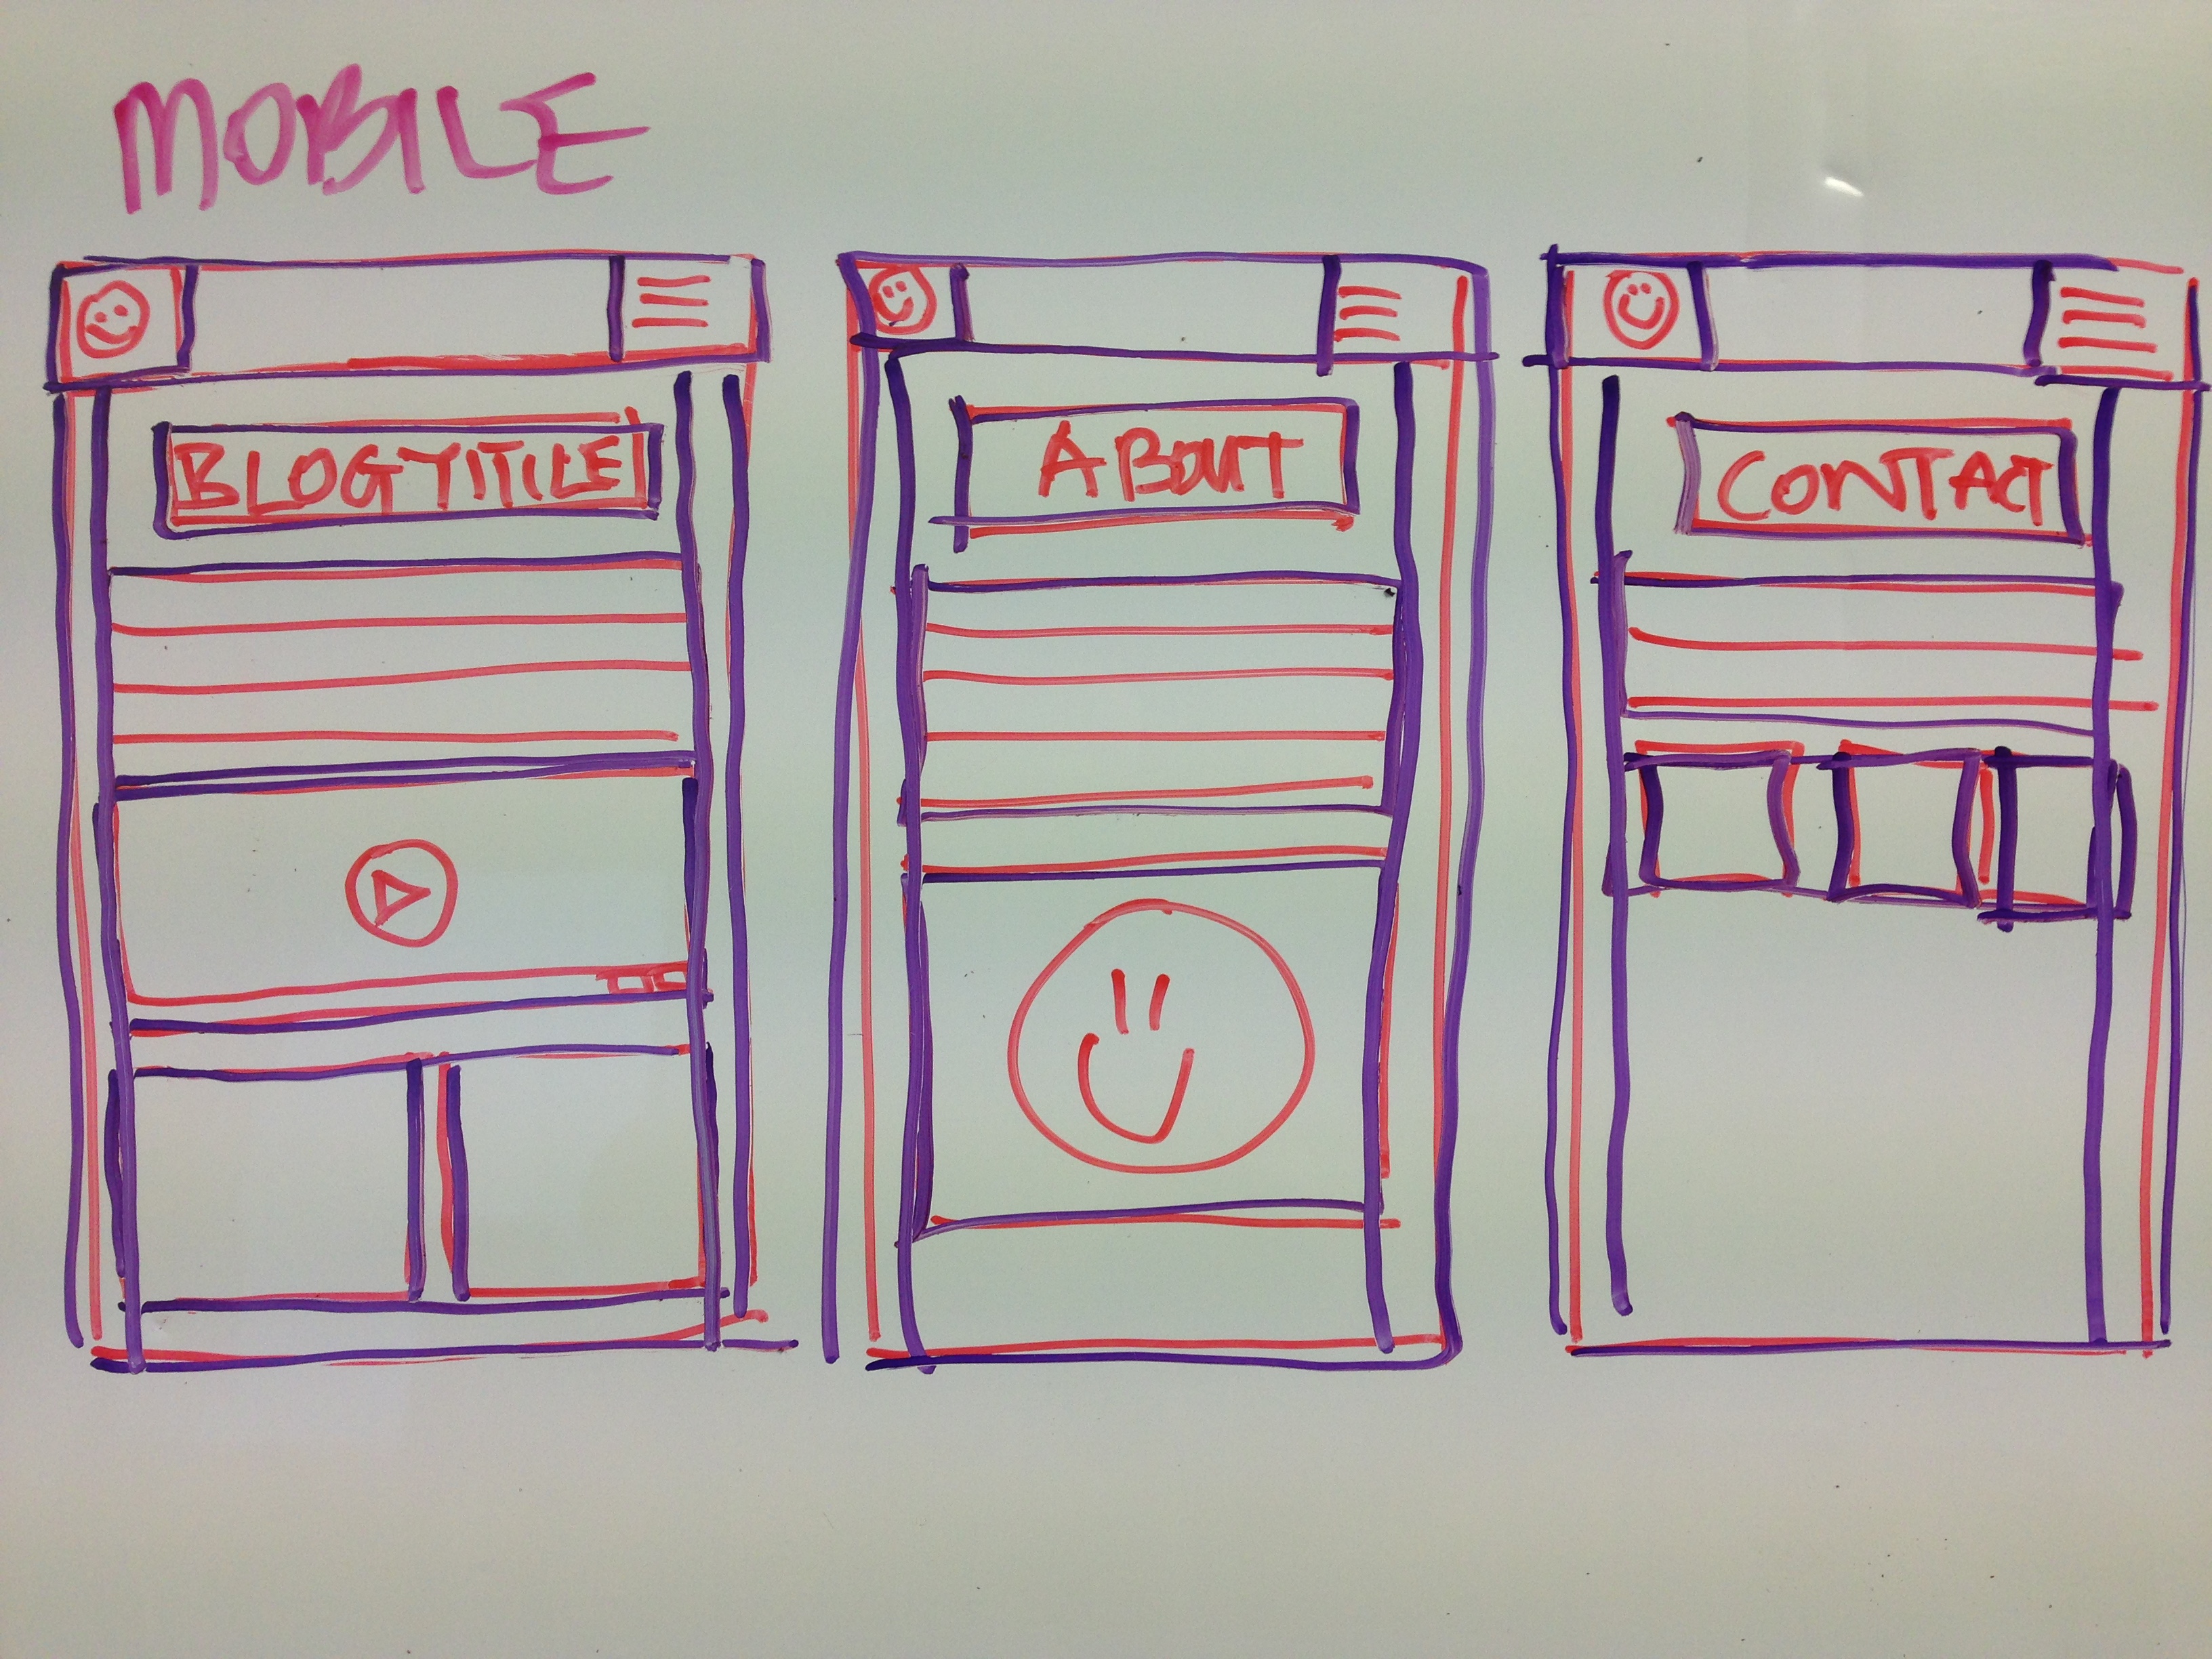 MOBILE
BLOG TITILE
ABOUT
CONTACT